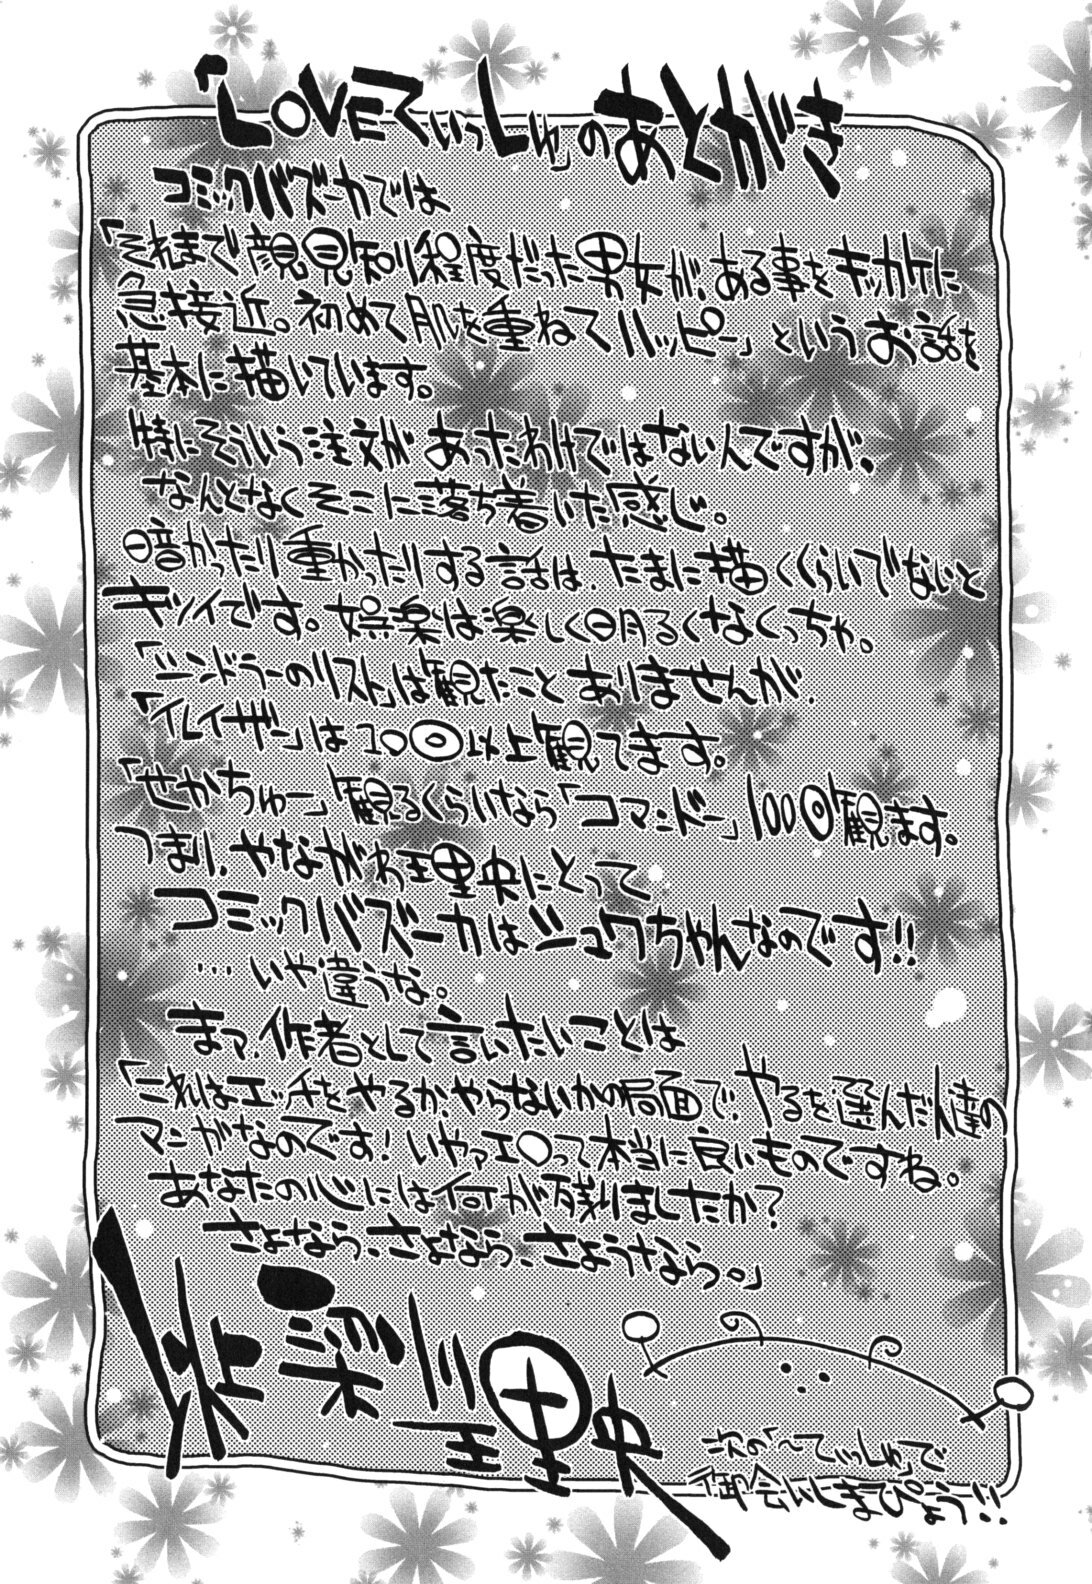 「LOVEてぃっしゅ」のあとがき
コミックバズーカでは
「それまで顔見知り程度だった男女が、ある事をキッカケに
急接近。初めて肌を重ねてハッピー」というお話を
基本に描いています。
特にそういう注文があったわけではないんですが、
なんとなくそこに落ち着いた感じ。
暗かったり重かったりする話は、たまに描くくらいでないと
キツイです。娯楽は楽しく明るくなくっちゃ。
「シンドラーのリスト」は観たことありませんが、
「イレイザー」は100回以上観てます。
「せかちゅー」観るくらいなら「コマンドー」100回観ます。
つまり、やながわ理央にとって
コミックバズーカはシュワちゃんなのです!!
…いや違うな。
まァ、作者として言いたいことは
「これはエッチをやるか、やらないかの局面で、やるを選んだ人達の
マンガなのです!いやァエロって本当に良いものですね。
あなたの心には何が残りましたか?
さよなら、さよなら、さようなら。」
理央
次の「～てぃっしゅ」で
御会いしまぴょう!!